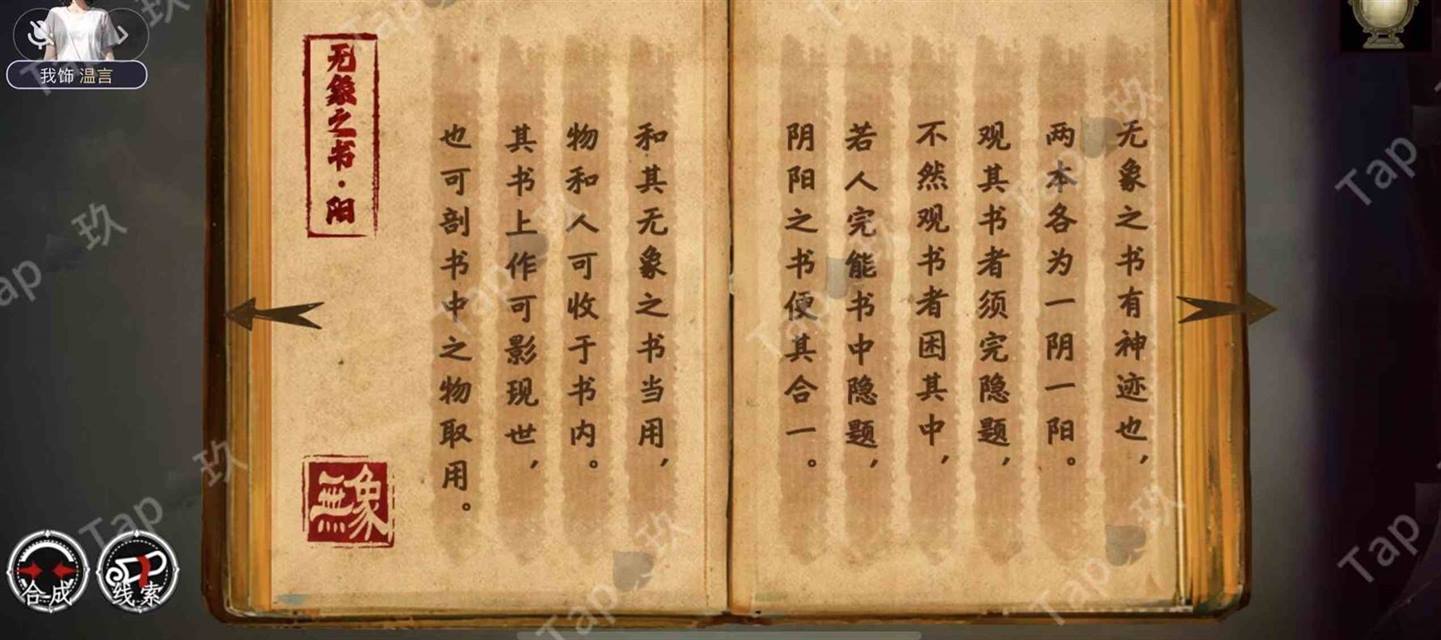 无象之书有神迹也，
两本各为一阴一阳。
观其书者须完隐题，
不然观书者困其中，
若人完能书中隐题，
阴阳之书便其合一。
和其无象之书当用，
物和人可收于书内。
其书上作可影现世，
也可剖书中之物取用。
无象之书·阳
無象
我饰 温言
合成
线索
Tap 玖
Tap 玖
Tap 玖
Tap 玖
Tap 玖
Tap 玖
Tap 玖
Tap 玖
Tap
Tap